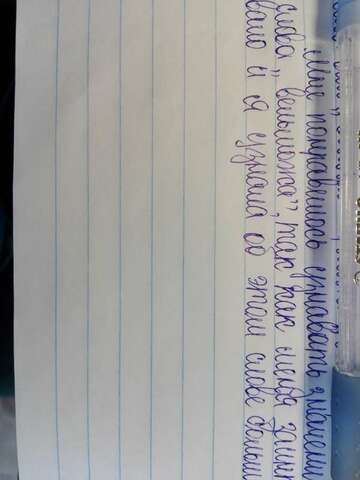 Мне понравилось узнавать значени
слова "вельможа", так как меня заин
вало и я узнала об этом слове больш